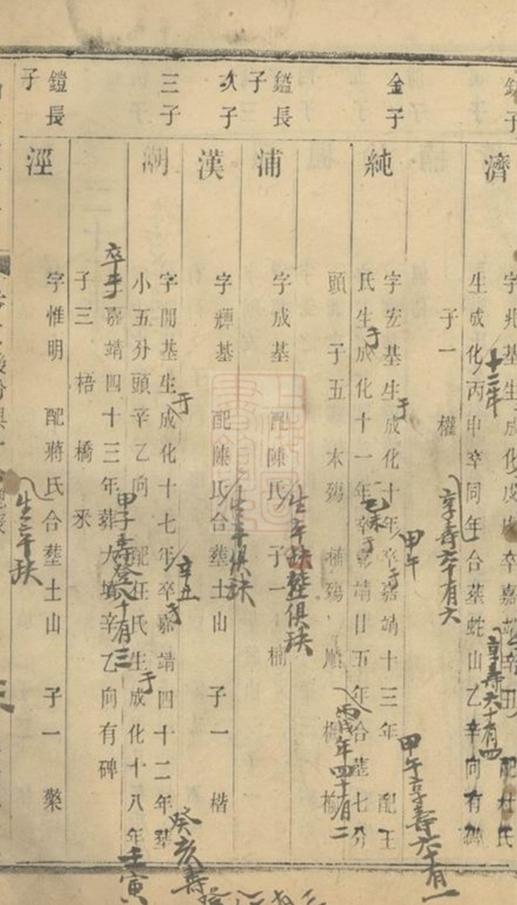 子
濟
字兆基生成化戊戌卒嘉靖辛丑 配杜氏
十二年
享壽六十有四
生成化丙申卒同年合塟蛇山乙辛向有碑
子一 權
享壽六十有六
金子
純
字宏基生于成化十年卒于嘉靖十三年 配王
甲午
甲午享壽六十有一
氏生于成化十一年卒于嘉靖廿五年合塟七分
乙未
丙戌年四十有二
頭 子五 本殤 橘殤 順 梅
鎰長子
浦
字成基 配陳氏 子一 楠
生卒塟俱
次子
漢
字輝基 配陳氏合塟土山 子一 楷
生卒俱
三子
湖
字開基生于成化十七年卒于嘉靖四十二年塟
辛丑
癸亥壽
小五分頭辛乙向 配汪氏生于成化十八年
壬寅
卒于嘉靖四十三年葬大墳辛乙向有碑
甲子壽八十有三
子三 梧 橋
鎧長子
涇
字惟明 配蔣氏合塟土山 子一 槳
生卒